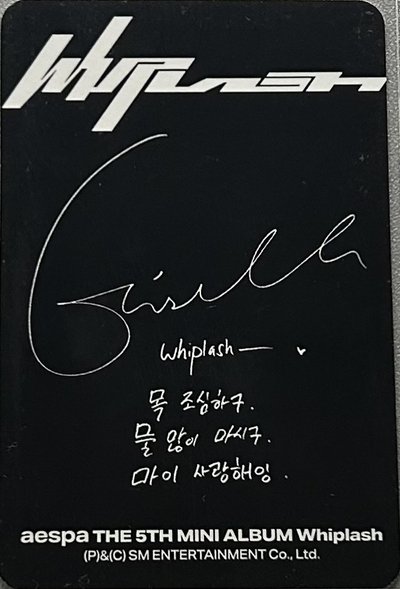 Whiplash
Giselle
Whiplash —
목 조심하구.
물 많이 마시구.
마이 사랑해잉.
aespa THE 5TH MINI ALBUM Whiplash
(P)&(C) SM ENTERTAINMENT Co., Ltd.